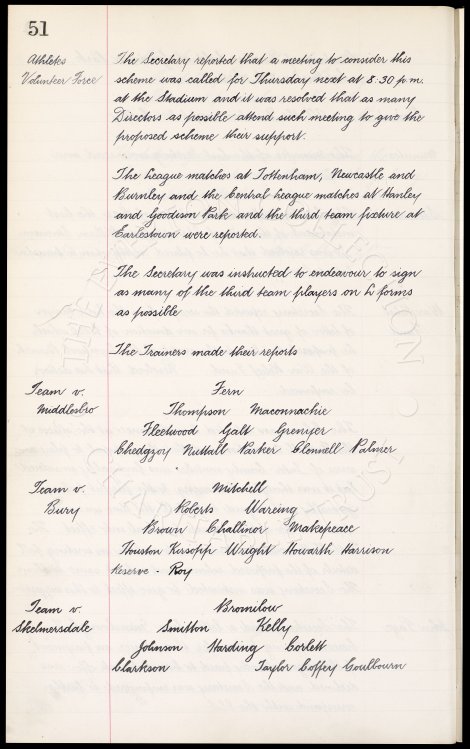 51
Athletes
Volunteer Force
The Secretary reported that a meeting to consider this
scheme was called for Thursday next at 8.30 p.m.
at the Stadium and it was resolved that as many
Directors as possible attend such meeting to give the
proposed scheme their support.
The League matches at Tottenham, Newcastle and
Burnley and the Central League matches at Hanley
and Goodison Park and the third team fixture at
Earlestown were reported.
The Secretary was instructed to endeavour to sign
as many of the third team players on L forms
as possible
The Trainers made their reports
Team v.
Middlesbro
Fern
Thompson Maconnachie
Fleetwood Galt Grenyer
Chedgzoy Nuttall Parker Clennell Palmer
Team v.
Bury
Mitchell
Roberts Wareing
Brown Challinor Makepeace
Houston Kirsopp Wright Howarth Harrison
Reserve - Roy
Team v.
Skelmersdale
Bromilow
Smitton Kelly
Johnson Harding Corlett
Clarkson Taylor Coffey Goulbourn